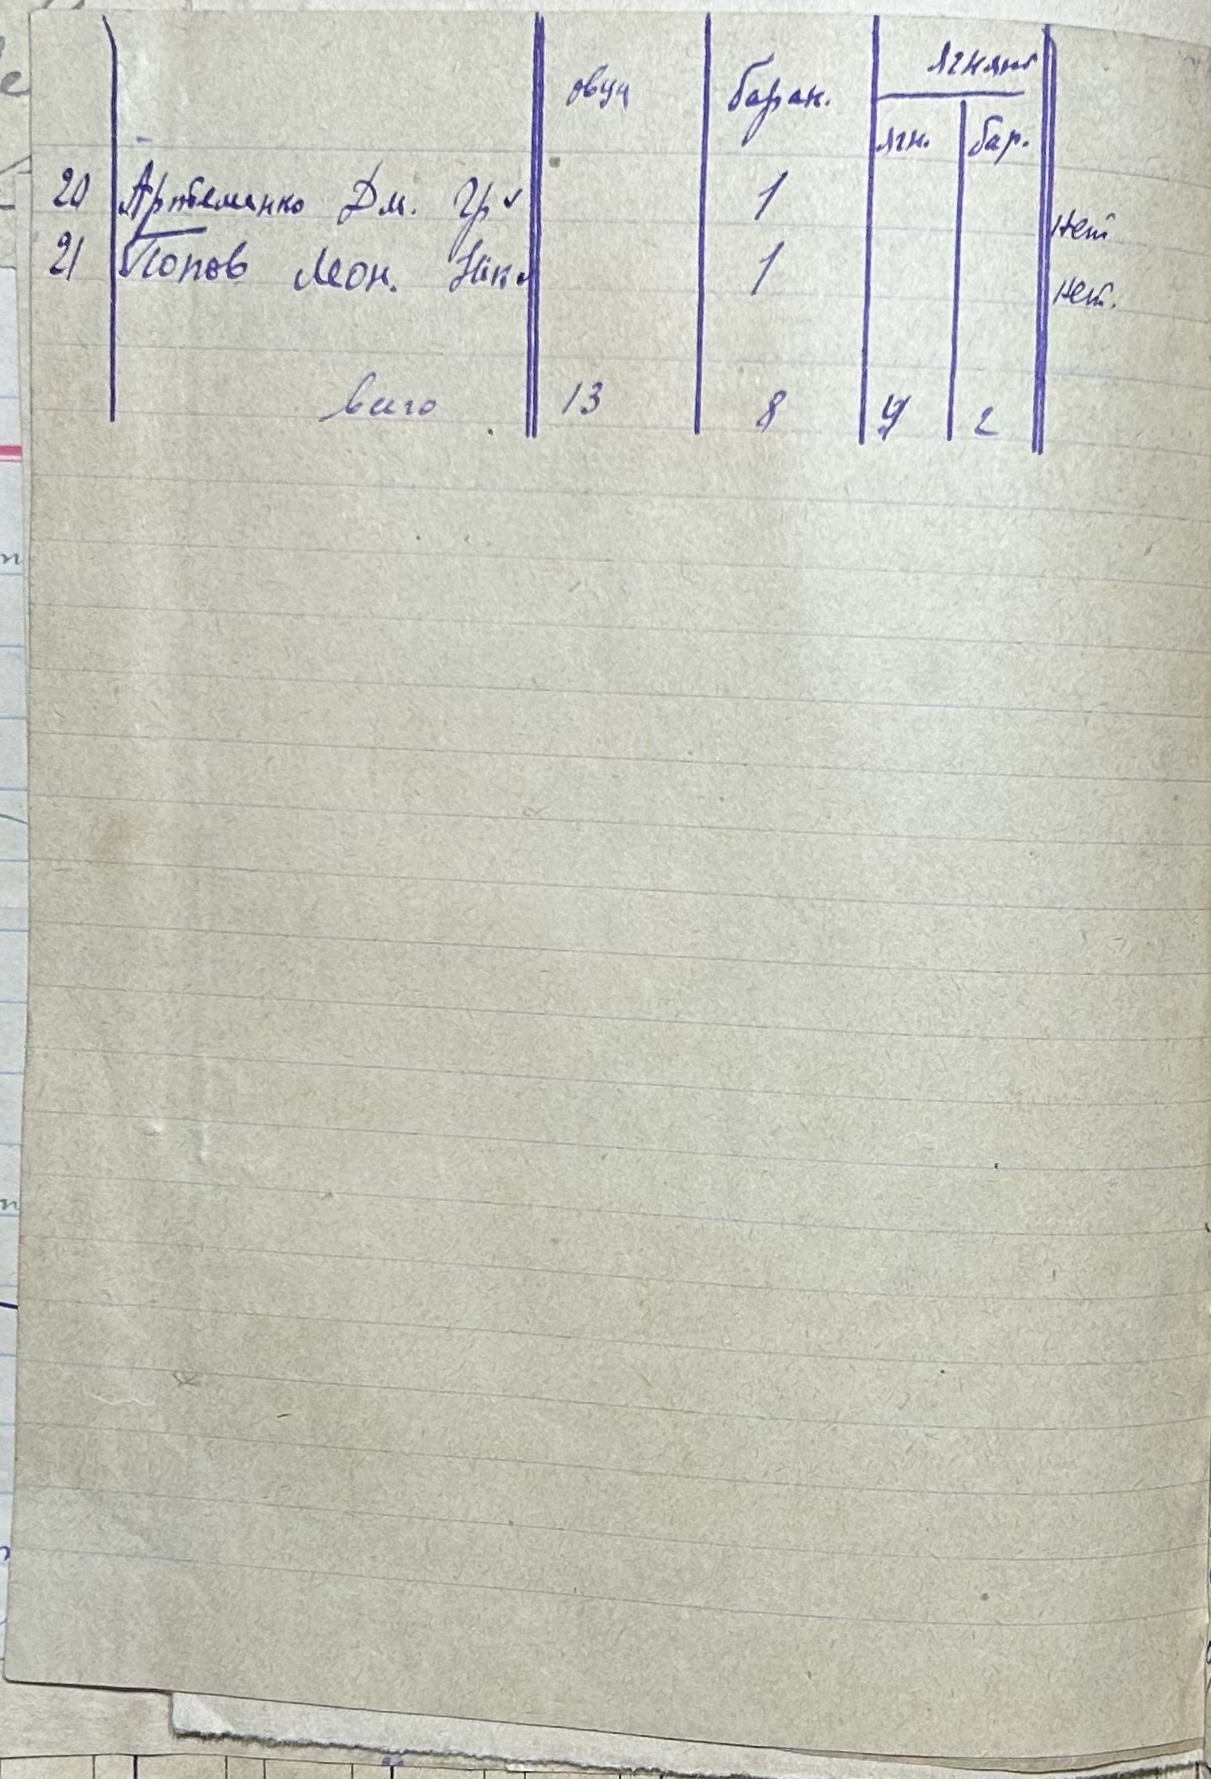 овци баран. ягнят
ягн. бар.
20 Артеменко Дм. Гр. 1 нет
21 Попов Леон. Ник. 1 нет.
всего 13 8 2